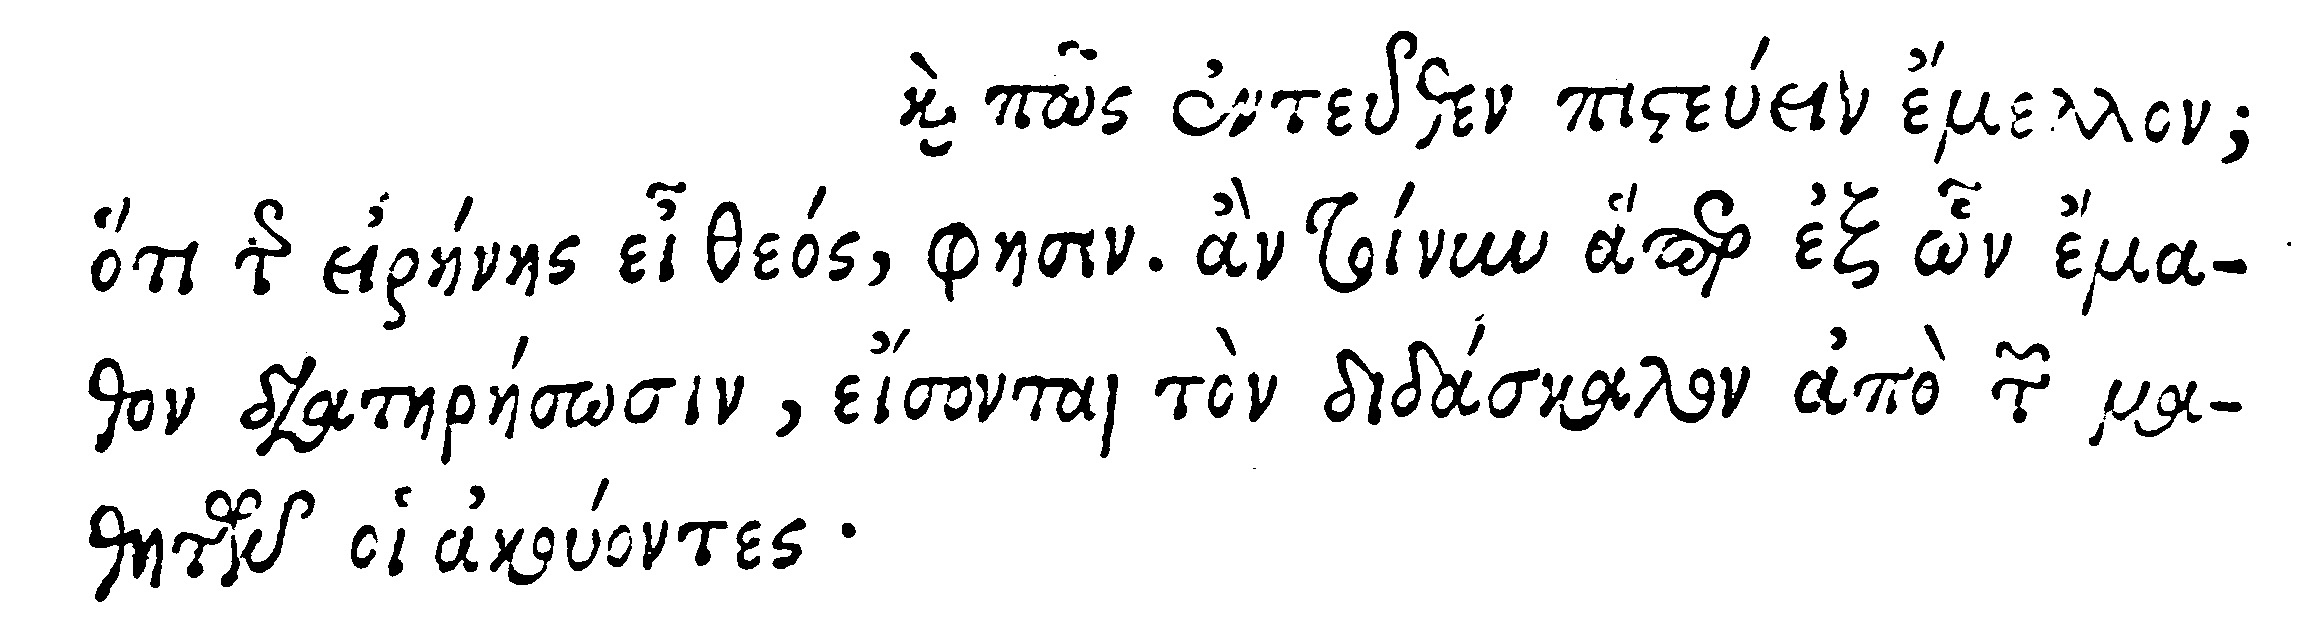 καὶ πῶς ἐντεῦθεν πιστεύειν ἔμελλον;
ὅτι τῆς εἰρήνης εἶ θεός, φησιν. ἀν τοίνυν ἅπερ ἐξ ὧν ἔμα-
θον διατηρήσωσιν, εἴσονται τὸν διδάσκαλον ἀπὸ τῶν μα-
θητῶν οἱ ἀκούοντες·